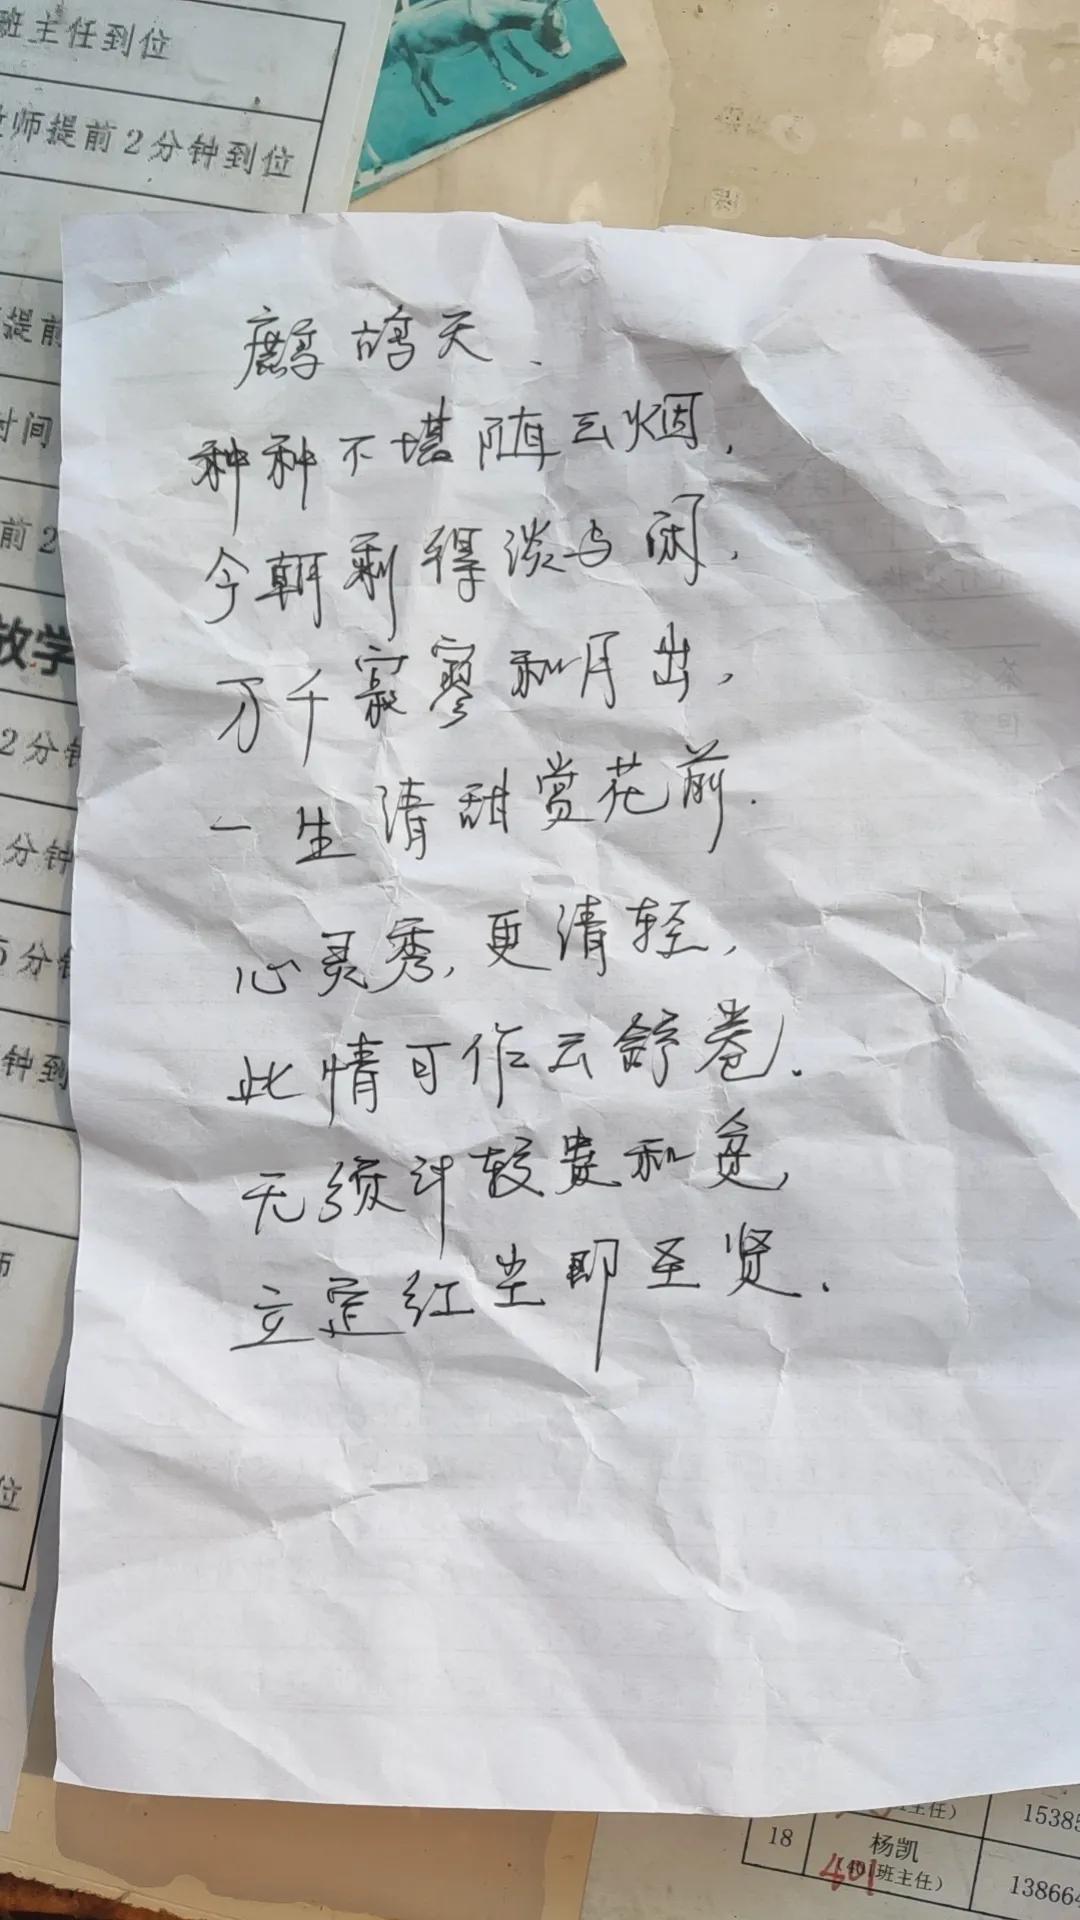 班主任到位
师提前2分钟到位
提前
时间
前2
放学
2分钟
分钟
5分钟
钟到
师
位
鹧鸪天.
种种不堪随云烟,
今朝剩得淡与闲,
万千寂寥和月出,
一生清甜赏花前.
心灵秀,更清轻,
此情可作云舒卷.
无须计较贵和贫,
立定红尘即至贤.
主任)
15385
18
杨凯
(401班主任)
401
13864